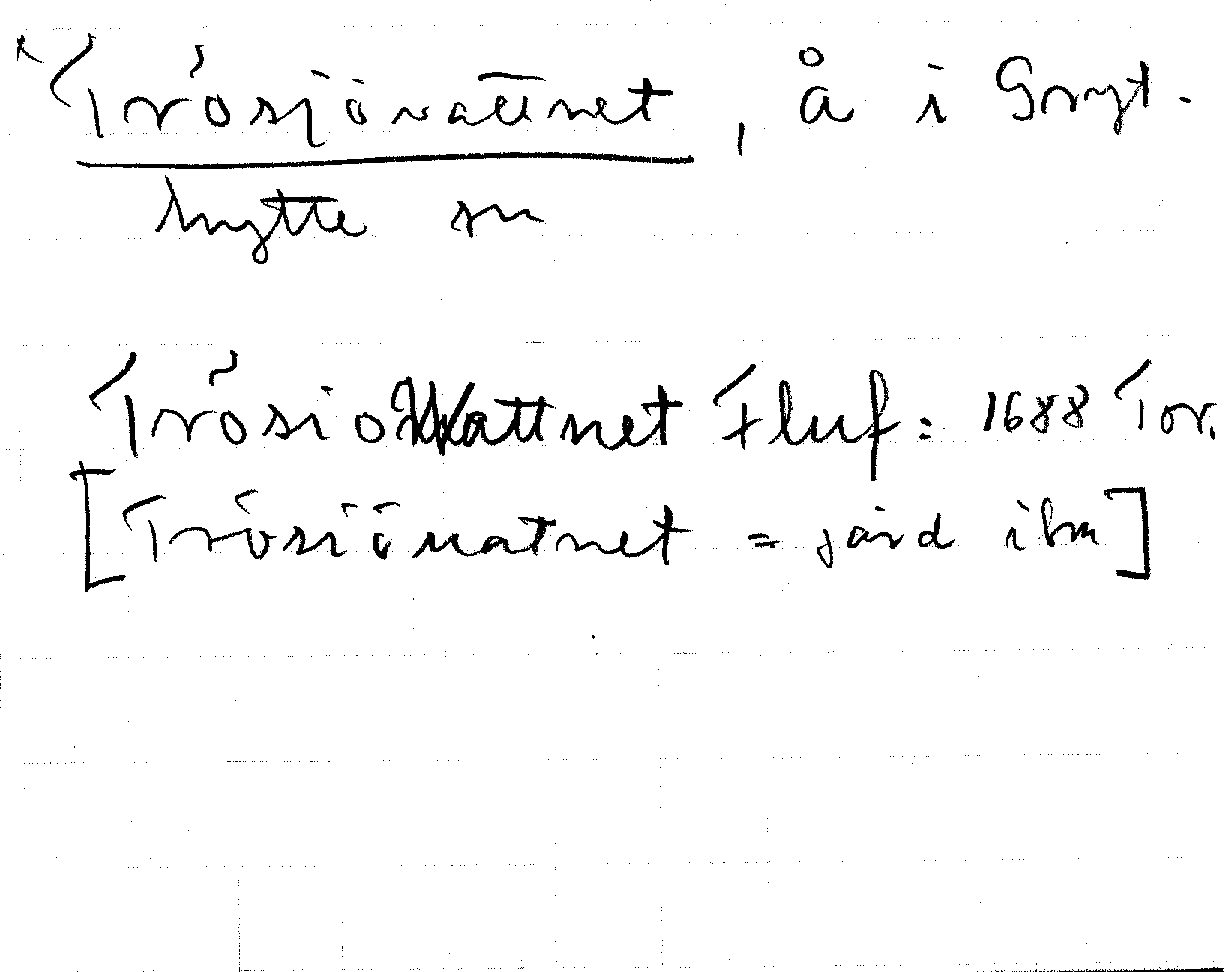 *Trösjövattnet, å i Gryt-
hytte sn
TrösioWattnet Fluf: 1688 Tor.
[Trösiöuatnet = järd ibm]